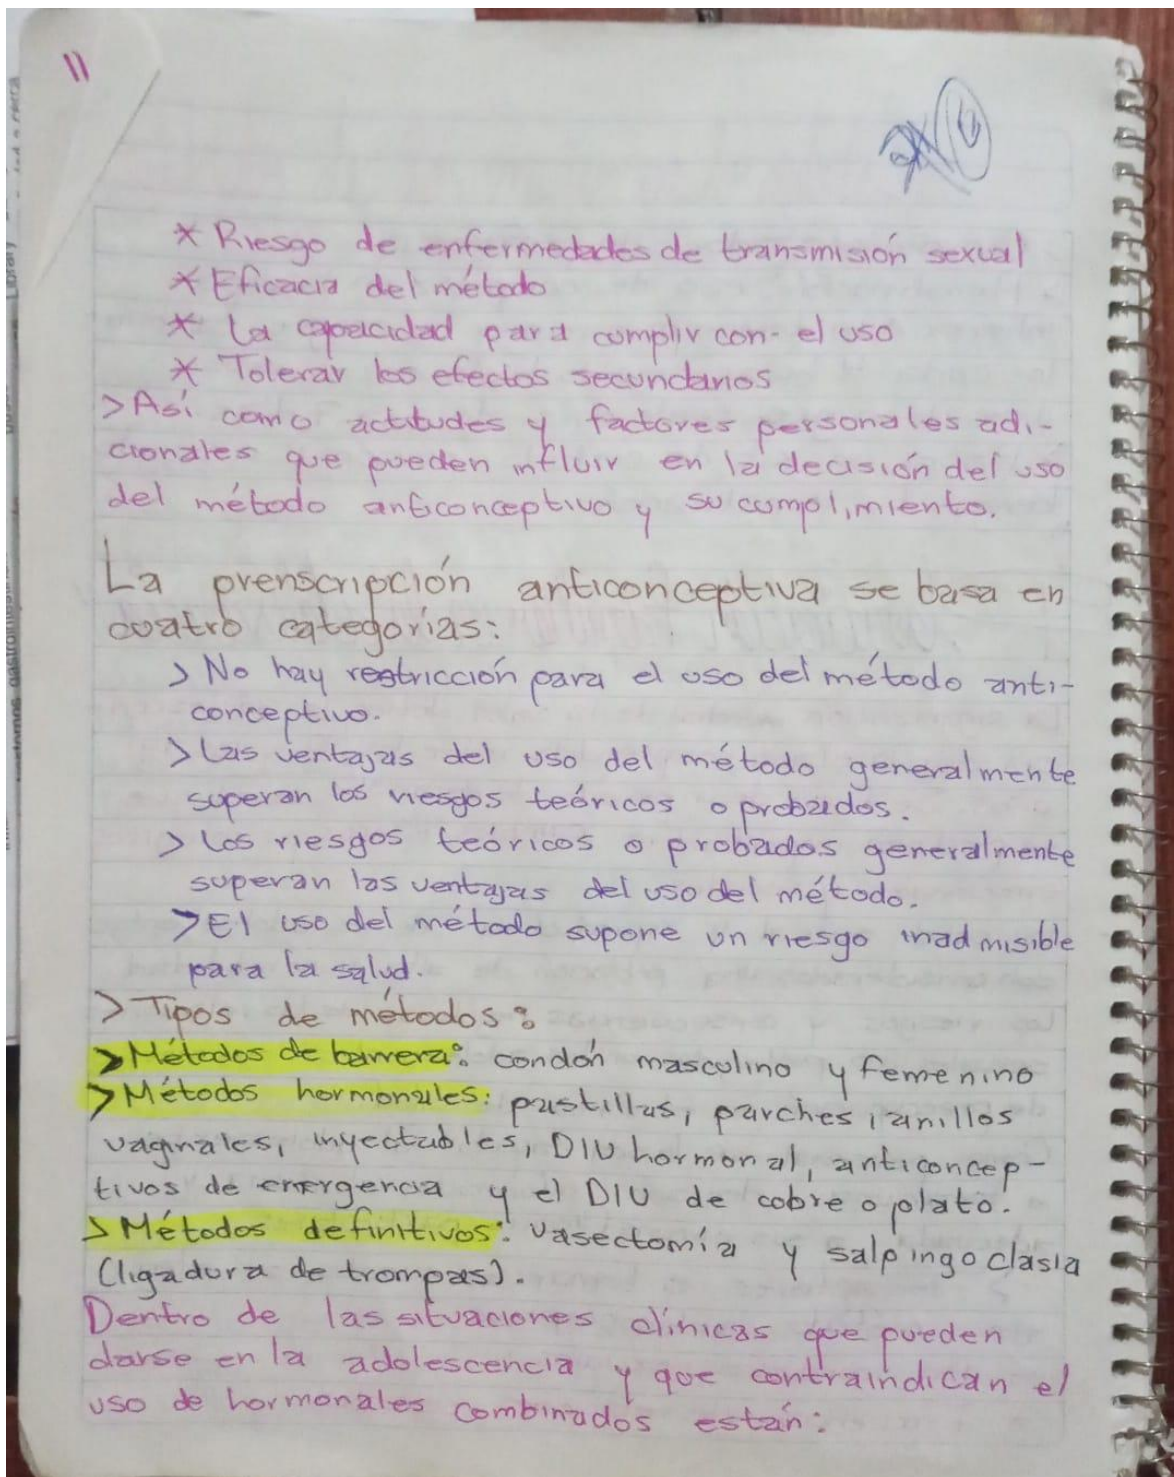 11
* Riesgo de enfermedades de transmisión sexual
* Eficacia del método
* La capacidad para cumplir con- el uso
* Tolerar los efectos secundarios
> Así como actitudes y factores personales adi-
cionales que pueden influir en la decisión del uso
del método anticonceptivo y su cumplimiento.
La prenscripción anticonceptiva se basa en
cuatro categorías:
> No hay restricción para el uso del método anti-
conceptivo.
> Las ventajas del uso del método generalmente
superan los riesgos teóricos o probados.
> Los riesgos teóricos o probados generalmente
superan las ventajas del uso del método.
> El uso del método supone un riesgo inadmisible
para la salud.
> Tipos de métodos:
> Métodos de barrera: condón masculino y femenino
> Métodos hormonales: pastillas, parches, anillos
vaginales, inyectables, DIU hormonal, anticoncep-
tivos de emergencia y el DIU de cobre o plato.
> Métodos definitivos: vasectomía y salpingoclasia
(ligadura de trompas).
Dentro de las situaciones clínicas que pueden
darse en la adolescencia y que contraindican el
uso de hormonales combinados están: